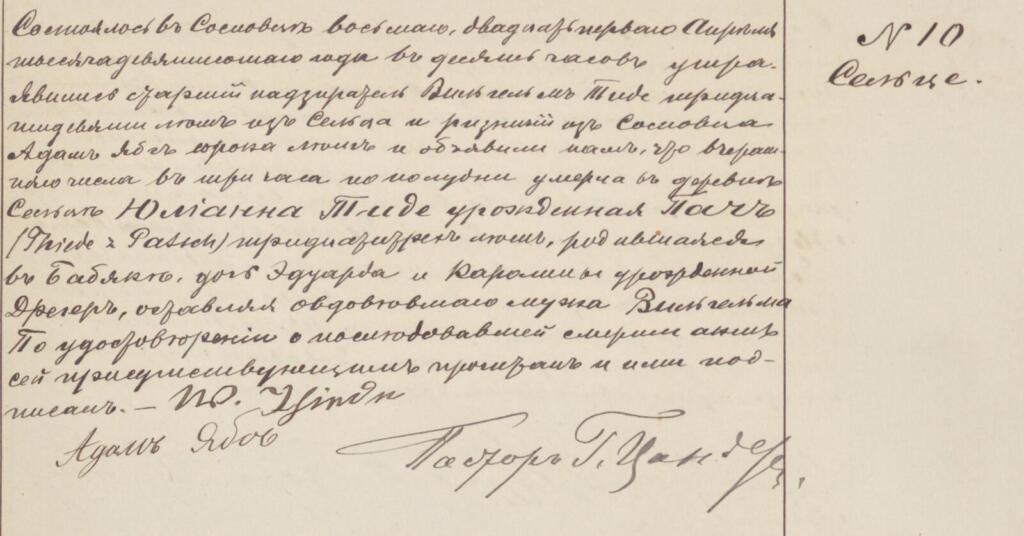 Состоялось въ Сосновицахъ восьмаго, двадцать перваго Апрѣля
тысяча девятисотаго года въ десять часовъ утра.
Явились старшій надзиратель Вильгельмъ Тиде тридца-
тидевяти лѣтъ изъ Сельца и рѣзникъ изъ Сосновца
Адамъ сорока лѣтъ и объявили намъ, что вчераш-
няго числа въ три часа по полудни умерла въ деревнѣ
Сельцѣ Юліанна Тиде урожденная Пачъ
(Thiede z Patsch) тридцатитрехъ лѣтъ, родившаяся
въ Бабякѣ, дочь Эдуарда и Каролины урожденной
Дрегеръ, оставляя овдовѣвшаго мужа Вильгельма
По удостовѣреніи о послѣдовавшей смерти актъ
сей присутствующимъ прочтанъ и ими под-
писанъ. – W. Thiede
Адамъ
Пасторъ Г. Цандеръ
N 10
Сельце.